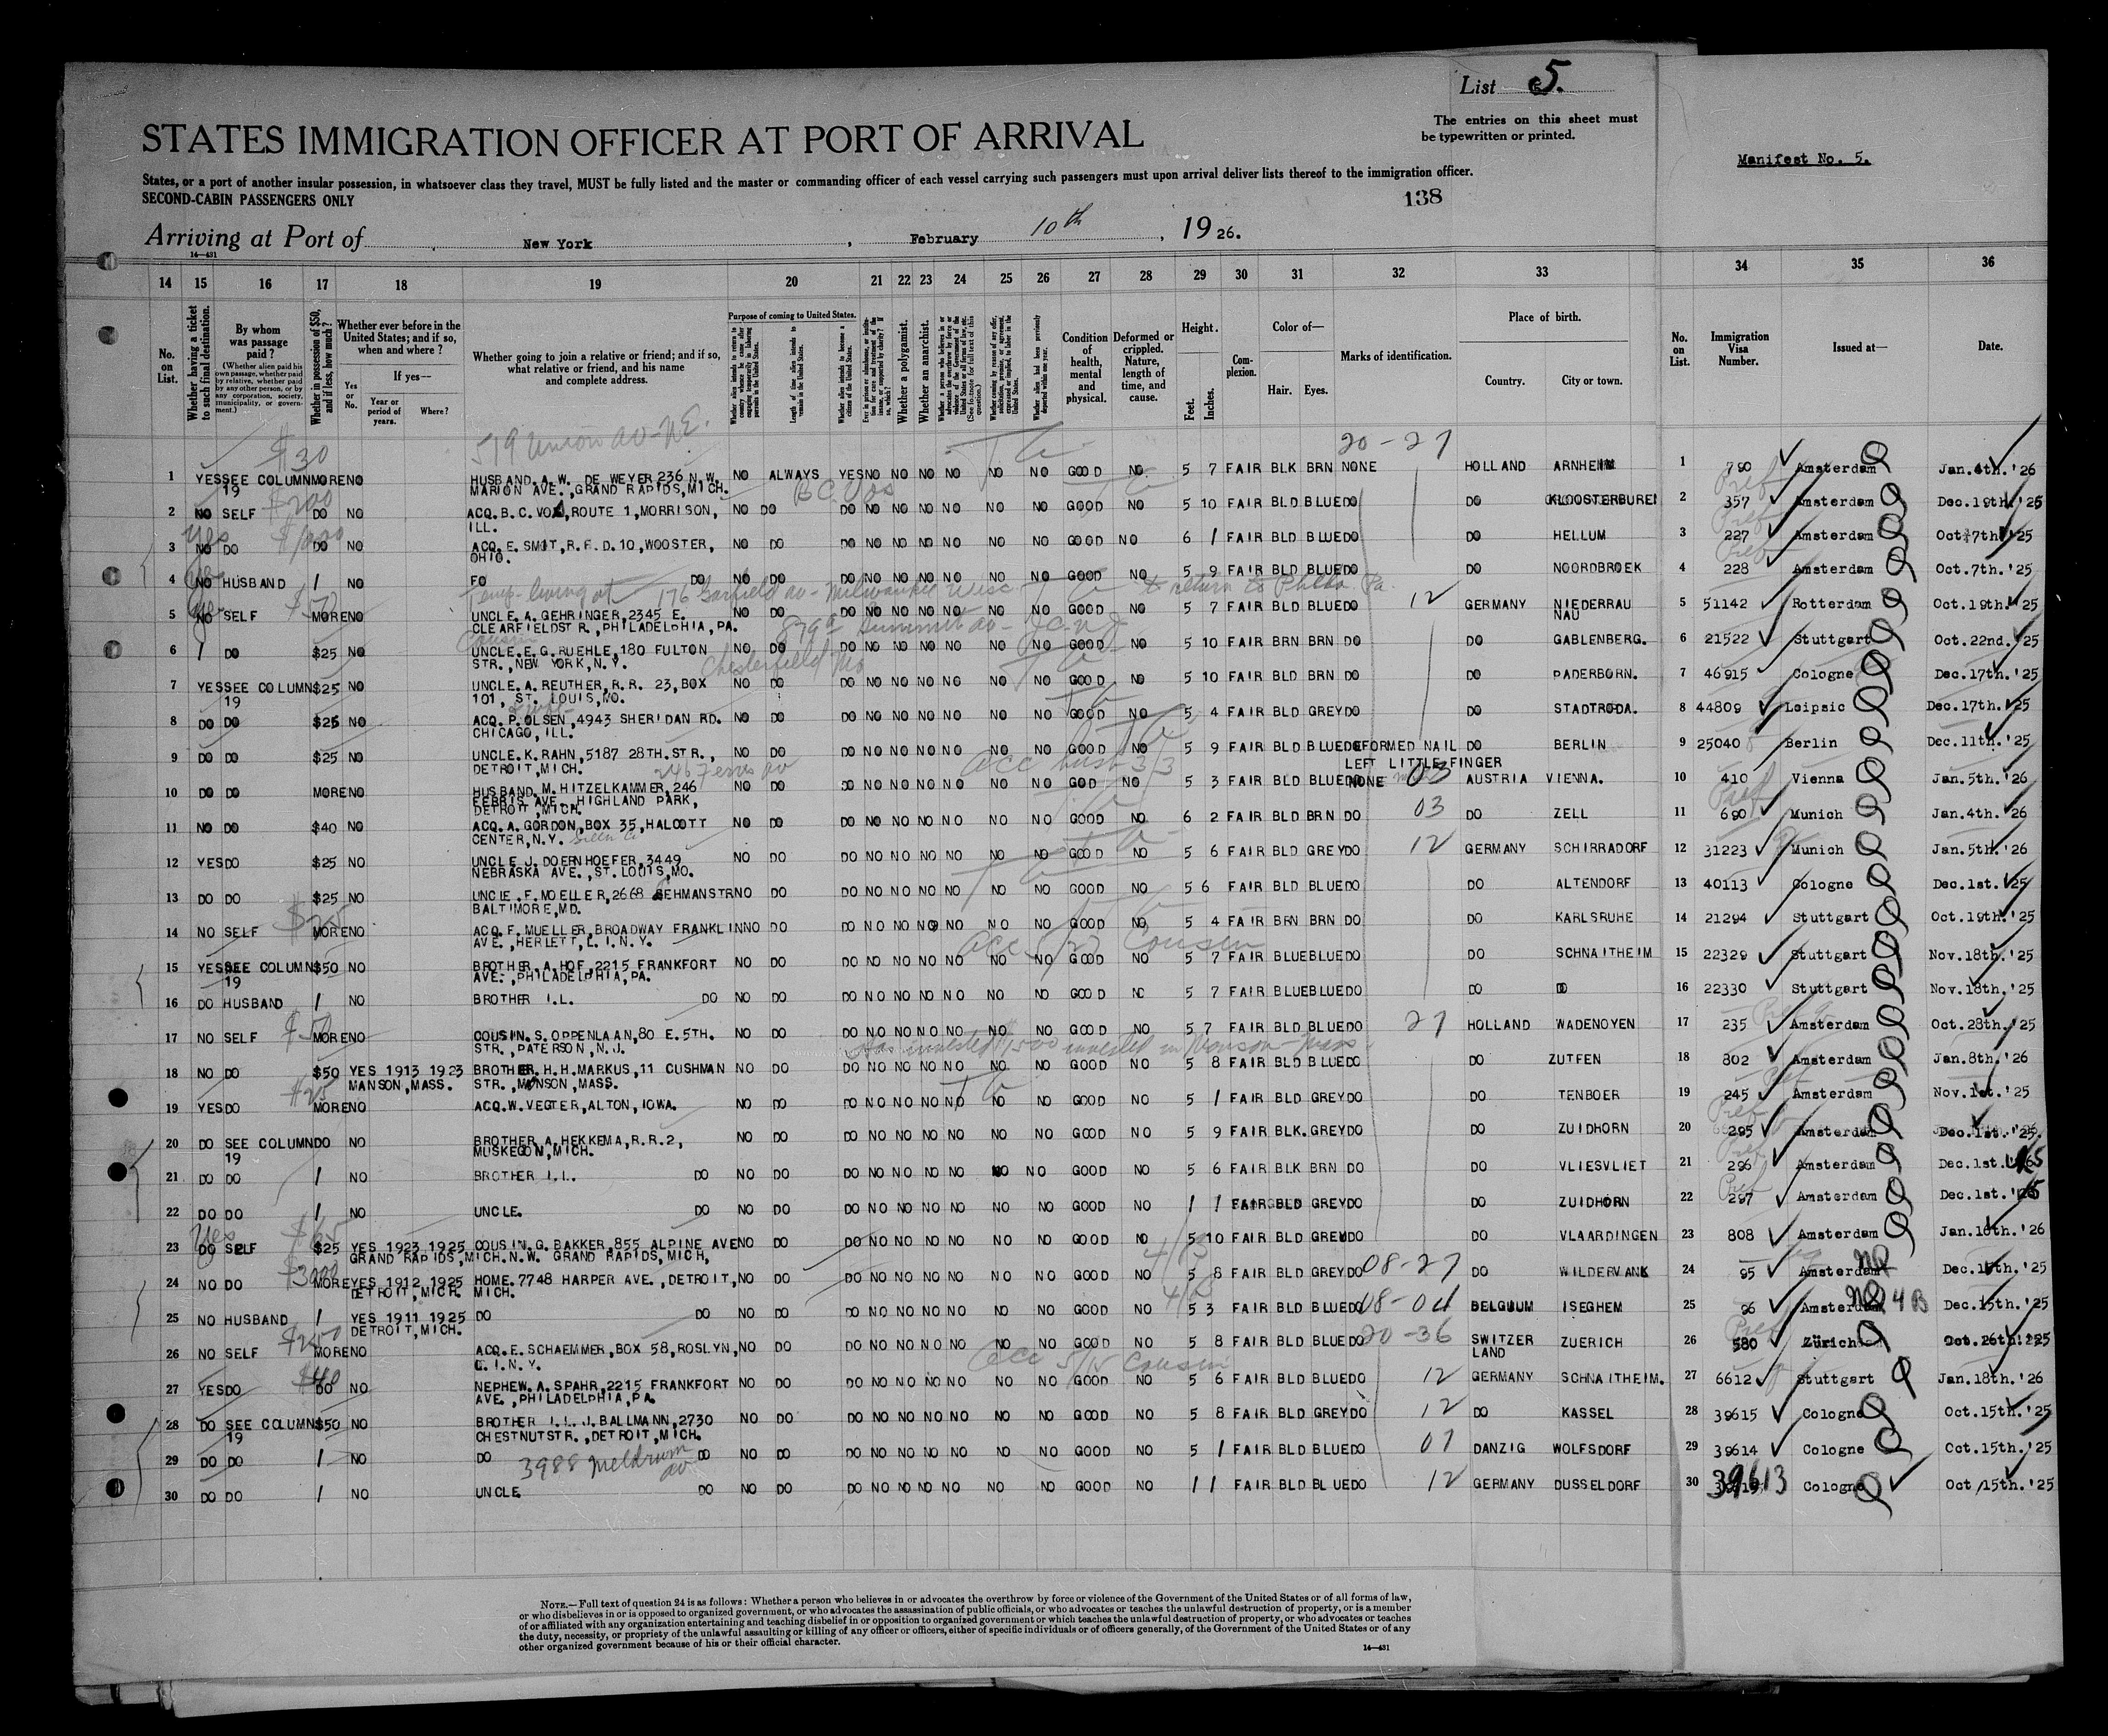 List 5.
The entries on this sheet must
be typewritten or printed.
STATES IMMIGRATION OFFICER AT PORT OF ARRIVAL
Manifest No. 5.
States, or a port of another insular possession, in whatsoever class they travel, MUST be fully listed and the master or commanding officer of each vessel carrying such passengers must upon arrival deliver lists thereof to the immigration officer.
SECOND-CABIN PASSENGERS ONLY
138
Arriving at Port of New York, February 10th, 1926.
14—431
14 15 16 17 18 19 20 21 22 23 24 25 26 27 28 29 30 31 32 33 34 35 36
No. on List.
Whether having a ticket to such final destination.
By whom was passage paid?
(Whether alien paid his own passage, whether paid by relative, whether paid by any other person, or by any corporation, society, municipality, or government.)
Whether in possession of $50, and if less, how much?
Whether ever before in the United States; and if so, when and where?
Yes or No.
If yes—
Year or period of years.
Where?
Whether going to join a relative or friend; and if so, what relative or friend, and his name and complete address.
Purpose of coming to United States.
Whether a polygamist.
Whether an anarchist.
Condition of health, mental and physical.
Deformed or crippled. Nature, length of time, and cause.
Height.
Feet. Inches.
Complexion.
Color of—
Hair. Eyes.
Marks of identification.
Place of birth.
Country. City or town.
No. on List.
Immigration Visa Number.
Issued at—
Date.
$30
519 Union av-N.E.
20-27
1 YES SEE COLUMN 19 MORE NO HUSBAND. A.W. DE WEYER 236 N.W. MARION AVE., GRAND RAPIDS, MICH. NO ALWAYS YES NO NO NO NO NO NO GOOD NO 5 7 FAIR BLK BRN NONE HOLLAND ARNHEIM 1 790 Amsterdam Jan.4th.'26
2 NO SELF DO NO ACQ. B.C. VOS, ROUTE 1, MORRISON, ILL. NO DO DO NO NO NO NO NO NO GOOD NO 5 10 FAIR BLD BLUE DO DO KLOOSTERBUREN 2 357 Amsterdam Dec.19th.'25
3 NO DO DO NO ACQ. E. SMIT, R.F.D. 10, WOOSTER, OHIO. NO DO DO NO NO NO NO NO NO GOOD NO 6 1 FAIR BLD BLUE DO DO HELLUM 3 227 Amsterdam Oct.7th.'25
4 NO HUSBAND / NO FO DO NO DO DO NO NO NO NO NO NO GOOD NO 5 9 FAIR BLD BLUE DO DO NOORDBROEK 4 228 Amsterdam Oct.7th.'25
Temp. living at 176 Garfield av- Milwaukee Wisc to return to Phila Pa.
5 NO SELF MORE NO UNCLE. A. GEHRINGER, 2345 E. CLEARFIELDSTR., PHILADELPHIA, PA. NO DO DO NO NO NO NO NO NO GOOD NO 5 7 FAIR BLD BLUE DO 12 GERMANY NIEDERRAU NAU 5 51142 Rotterdam Oct.19th.'25
6 / DO $25 NO UNCLE. E.G. RUEHLE, 180 FULTON STR., NEW YORK, N.Y. NO DO DO NO NO NO NO NO NO GOOD NO 5 10 FAIR BRN BRN DO DO GABLENBERG. 6 21522 Stuttgart Oct.22nd.'25
Chesterfield Mo
7 YES SEE COLUMN 19 $25 NO UNCLE. A. REUTHER, R.R. 23, BOX 101, ST. LOUIS, MO. NO DO DO NO NO NO NO NO NO GOOD NO 5 10 FAIR BLD BRN DO DO PADERBORN. 7 46915 Cologne Dec.17th.'25
8 DO DO $25 NO ACQ. P. OLSEN, 4943 SHERIDAN RD. CHICAGO, ILL. NO DO DO NO NO NO NO NO NO GOOD NO 5 4 FAIR BLD GREY DO DO STADTRODA. 8 44809 Leipsic Dec.17th.'25
9 DO DO $25 NO UNCLE. K. RAHN, 5187 28TH. STR., DETROIT, MICH. NO DO DO NO NO NO NO NO NO GOOD NO 5 9 FAIR BLD BLUE DEFORMED NAIL LEFT LITTLE FINGER DO BERLIN 9 25040 Berlin Dec.11th.'25
10 DO DO MORE NO HUSBAND. M. HITZELKAMMER, 246 FERRIS AVE. HIGHLAND PARK, DETROIT, MICH. NO DO DO NO NO NO NO NO NO GOD NO 5 3 FAIR BLD BLUE NONE 03 AUSTRIA VIENNA. 10 410 Vienna Jan.5th.'26
11 NO DO $40 NO ACQ. A. GORDON, BOX 35, HALCOTT CENTER, N.Y. NO DO DO NO NO NO NO NO NO GOOD NO 6 2 FAIR BLD BRN DO 03 DO ZELL 11 690 Munich Jan.4th.'26
12 YES DO $25 NO UNCLE J. DOERNHOEFER, 3449 NEBRASKA AVE., ST. LOUIS, MO. NO DO DO NO NO NO NO NO NO GOOD NO 5 6 FAIR BLD GREY DO 12 GERMANY SCHIRRADORF 12 31223 Munich Jan.5th.'26
13 DO DO $25 NO UNCLE. F. MOELLER, 2668 GEHMANSTR BALTIMORE, MD. NO DO DO NO NO NO NO NO NO GOOD NO 5 6 FAIR BLD BLUE DO DO ALTENDORF 13 40113 Cologne Dec.1st.'25
14 NO SELF MORE NO ACQ. F. MUELLER, BROADWAY FRANKLIN AVE., HERLETT, L.I.N.Y. NO DO DO NO NO NO NO NO NO GOOD NO 5 4 FAIR BRN BRN DO DO KARLSRUHE 14 21294 Stuttgart Oct.19th.'25
acc 5/23 Cousin
15 YES SEE COLUMN 19 $50 NO BROTHER. A. HOF, 2215 FRANKFORT AVE., PHILADELPHIA, PA. NO DO DO NO NO NO NO NO NO GOOD NO 5 7 FAIR BLUE BLUE DO DO SCHNAITHEIM 15 22329 Stuttgart Nov.18th.'25
16 DO HUSBAND / NO BROTHER I.L. DO NO DO DO NO NO NO NO NO NO GOOD NO 5 7 FAIR BLUE BLUE DO DO DO 16 22330 Stuttgart Nov.18th.'25
17 NO SELF MORE NO COUSIN. S. OPPENLAAN, 80 E. 5TH. STR., PATERSON, N.J. NO DO DO NO NO NO NO NO NO GOOD NO 5 7 FAIR BLD BLUE DO 27 HOLLAND WADENOYEN 17 235 Amsterdam Oct.28th.'25
Has invested $1500 invested in Monson-Mass.
18 NO DO $50 YES 1913 1923 MANSON, MASS. BROTHER. H.H. MARKUS, 11 CUSHMAN STR., MONSON, MASS. NO DO DO NO NO NO NO NO NO GOOD NO 5 8 FAIR BLD BLUE DO DO ZUTFEN 18 802 Amsterdam Jan.8th.'26
19 YES DO MORE NO ACQ. W. VEGTER, ALTON, IOWA. NO DO DO NO NO NO NO NO NO GOOD NO 5 / FAIR BLD GREY DO DO TENBOER 19 245 Amsterdam Nov.1st.'25
20 DO SEE COLUMN 19 DO NO BROTHER. A. HEKKEMA, R.R. 2, MUSKEGON, MICH. NO DO DO NO NO NO NO NO NO GOOD NO 5 9 FAIR BLK. GREY DO DO ZUIDHORN 20 295 Amsterdam Dec.1st.'25.
21 DO DO / NO BROTHER I.L. DO NO DO DO NO NO NO NO NO NO GOOD NO 5 6 FAIR BLK BRN DO DO VLIESVLIET 21 296 Amsterdam Dec.1st.
22 DO DO / NO UNCLE. DO NO DO DO NO NO NO NO NO NO GOOD NO / / FAIR BLD GREY DO DO ZUIDHORN 22 297 Amsterdam Dec.1st.
23 DO SELF $25 YES 1923 1925 GRAND RAPIDS, MICH. COUSIN. G. BAKKER, 855 ALPINE AVE N.W. GRAND RAPIDS, MICH, NO DO DO NO NO NO NO NO NO GOOD NO 5 10 FAIR BLD GREY DO DO VLAARDINGEN 23 808 Amsterdam Jan.16th.'26
24 NO DO MORE YES 1912 1925 DETROIT, MICH. HOME. 7748 HARPER AVE., DETROIT, MICH. NO DO DO NO NO NO NO NO NO GOOD NO 5 8 FAIR BLD GREY DO 08-27 DO WILDERVANK 24 95 Amsterdam Dec.15th.'25
25 NO HUSBAND / YES 1911 1925 DETROIT, MICH. DO DO NO DO DO NO NO NO NO NO NO GOOD NO 5 3 FAIR BLD BLUE DO 08-04 BELGIUM ISEGHEM 25 96 Amsterdam Dec.15th.'25
26 NO SELF MORE NO ACQ. E. SCHAEMMER, BOX 58, ROSLYN, L.I.N.Y. NO DO DO NO NO NO NO NO NO GOOD NO 5 8 FAIR BLD BLUE DO 20-36 SWITZER LAND ZUERICH 26 580 Zürich Oct.26th.'25
acc 5/15 Cousin
27 YES DO DO NO NEPHEW. A. SPAHR, 2215 FRANKFORT AVE., PHILADELPHIA, PA. NO DO DO NO NO NO NO NO NO GOOD NO 5 6 FAIR BLD BLUE DO 12 GERMANY SCHNAITHEIM. 27 6612 Stuttgart Jan.18th.'26
28 DO SEE COLUMN 19 $50 NO BROTHER I.L. J. BALLMANN, 2730 CHESTNUTSTR., DETROIT, MICH. NO DO DO NO NO NO NO NO NO GOOD NO 5 8 FAIR BLD GREY DO 12 DO KASSEL 28 39615 Cologne Oct.15th.'25
29 DO DO / NO DO DO NO DO DO NO NO NO NO NO NO GOOD NO 5 / FAIR BLD BLUE DO 07 DANZIG WOLFSDORF 29 39614 Cologne Oct.15th.'25
3988 Meldrum av
30 DO DO / NO UNCLE DO NO DO DO NO NO NO NO NO NO GOOD NO / / FAIR BLD BLUE DO 12 GERMANY DUSSELDORF 30 39613 Cologne Oct/15th.'25
NOTE.—Full text of question 24 is as follows: Whether a person who believes in or advocates the overthrow by force or violence of the Government of the United States or of all forms of law,
or who disbelieves in or is opposed to organized government, or who advocates the assassination of public officials, or who advocates or teaches the unlawful destruction of property, or is a member
of or affiliated with any organization entertaining and teaching disbelief in or opposition to organized government or which teaches the unlawful destruction of property, or who advocates or teaches
the duty, necessity, or propriety of the unlawful assaulting or killing of any officer or officers, either of specific individuals or of officers generally, of the Government of the United States or of any
other organized government because of his or their official character.
14—431